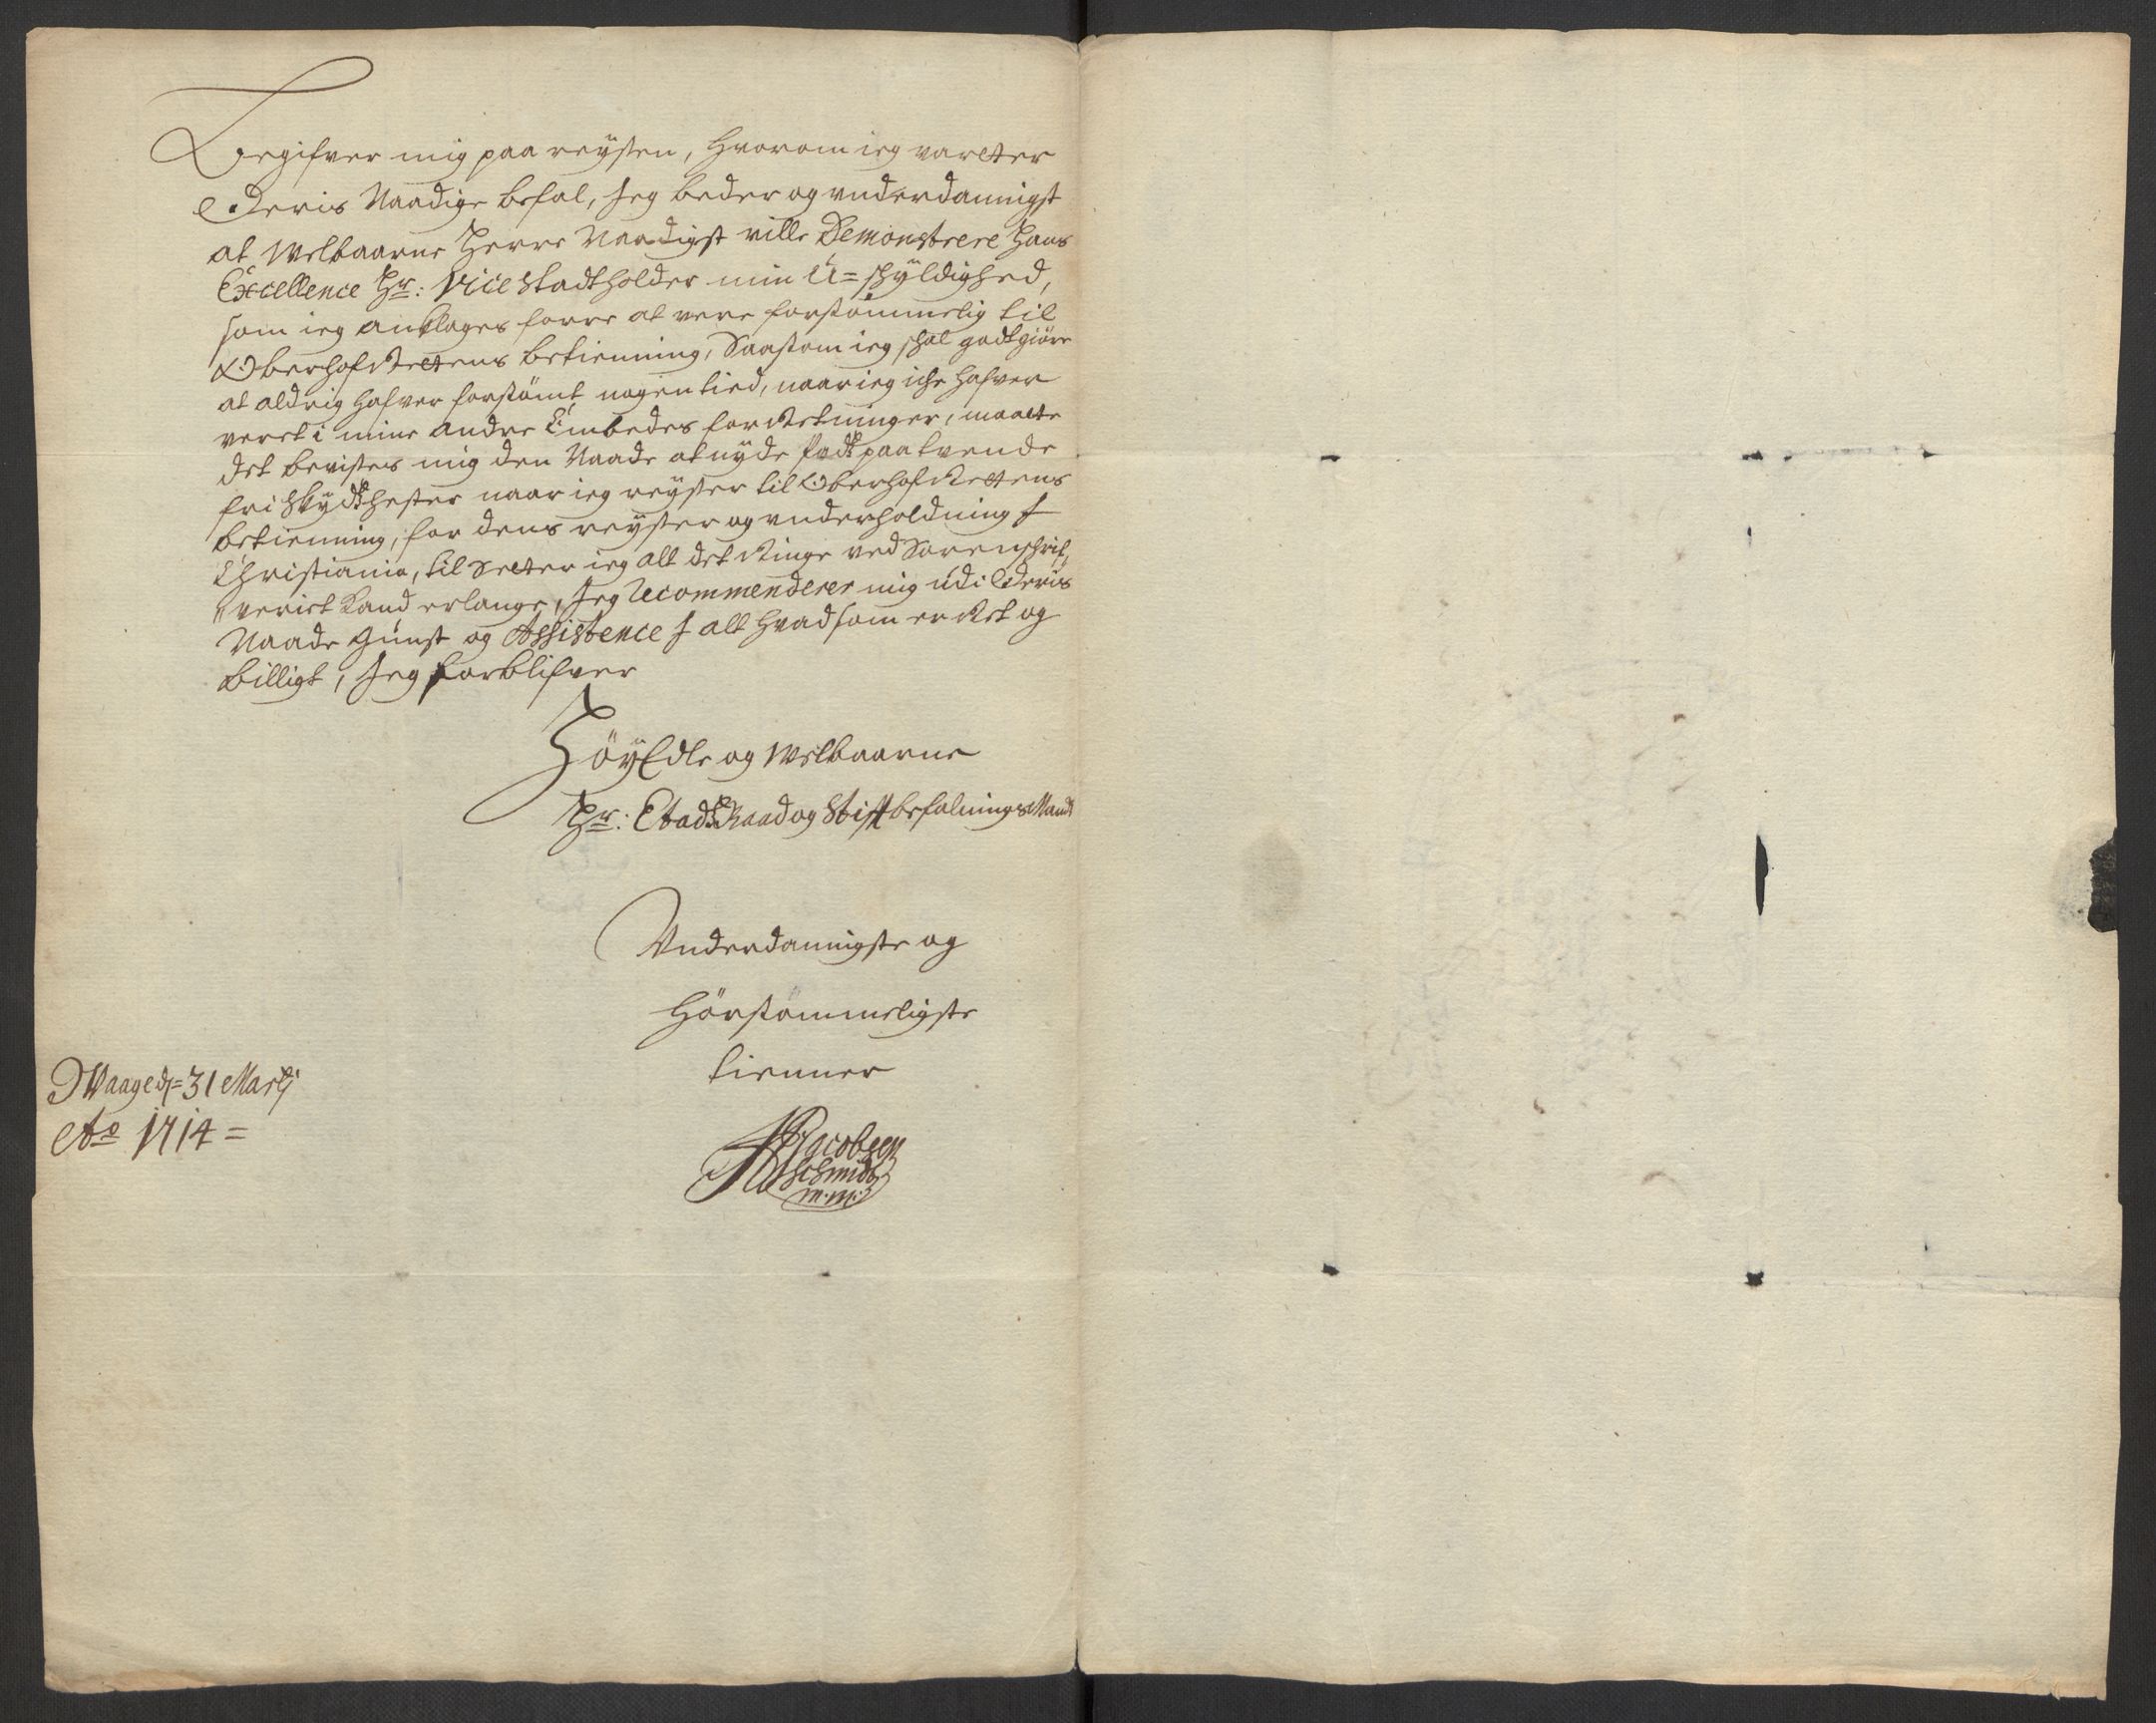 Begifver mig paa reysen, hvorom ieg vareter
Deris Naadige befal, Jeg beder og underdannigst
at Welbaarne Herre Naadigst ville Demonstrere Hans
Excellence Hr: Vice Stadtholder min U=skÿldighed,
som ieg anklages forre at vere forsömmelig til
OberhofRettens betienning, Saasom ieg skal godtgiöre
at aldrig hafver forsömt nogen tied, naar ieg iche hafver
veret i mine andre Embedes forRetninger, maatte
det bevises mig den Naade at nÿde paa tvende
fri Skÿdtshester naar ieg reyser til OberhofRettens
betienning, for dens reyser og underholdning J
Christiania, til Setter ieg alt det Ringe ved Sorenschrif,,
,,veriet kand erlange, Jeg Recommenderer mig udi Deris
Naade Günst og Assistence J alt hvad som er Ret og
billigt, Jeg forblifver
HöyEdle og Welbaarne
Hr: EtadtzRaad og StiftbefalningsMandt
Underdannigste og
Hörsommeligste
tienner
Waage d= 31 Martj
Ao 1714=
Jacobsen
Schmidt
m.m.